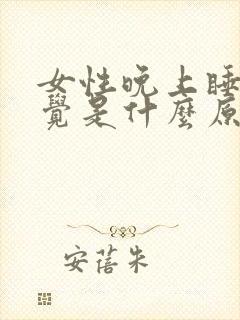 女性晚上睡
覺是什麼原
安蓓朱